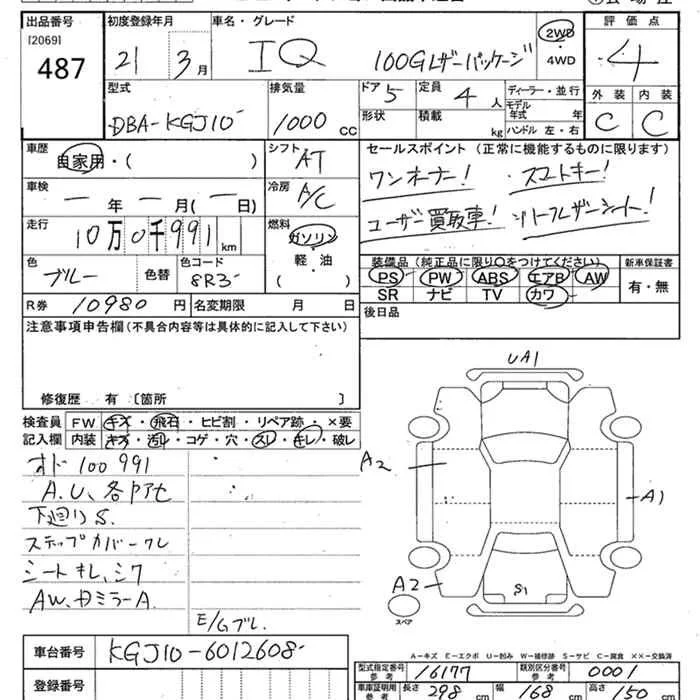 出品番号
[2069]
487
初度登録年月
21 3月
車名・グレード
IQ 100Gレザーパッケージ
2WD
4WD
評価点
4
型式
DBA-KGJ10
排気量
1000 CC
ドア 5
形状
定員 4 人
積載 kg
ディーラー・並行
モデル年式 年
ハンドル 左・右
外装 内装
C C
車歴
自家用・( )
シフト AT
セールスポイント (正常に機能するものに限ります)
ワンオーナー! スマートキー!
ユーザー買取車!
車検
一年一月(一日)
冷房 A/C
走行
10万0千991 km
燃料
ガソリン
軽・油
( )
装備品(純正品に限り○をつけてください)
PS PW ABS エアB AW
SR ナビ TV カワ
新車保証書
有・無
色
ブルー
色替
色コード
8R3
R券 10980 円
名変期限 月 日
後日品
注意事項申告欄(不具合内容等は具体的に記入して下さい)
修復歴 有〔箇所 〕
検査員記入欄
FW キズ・飛石・ヒビ割・リペア跡・×要
内装 キズ・汚レ・コゲ・穴・スレ・キレ・破レ
オド 100991
A.U、各
下廻りS.
ステップカバークレ
シートキレ、シワ
AW、ミラーA.
E/Gブレ.
UA1
A2
A1
A2
S1
スペア
A-キズ E-エクボ U-凹み W-補修跡 S-サビ C-腐食 ××-交換済
車台番号
KGJ10-6012608
登録番号
型式指定番号 参考 16177
類別区分番号 参考 0001
車庫証明用 参考 長さ 298 cm 幅 168 cm 高さ 150 cm